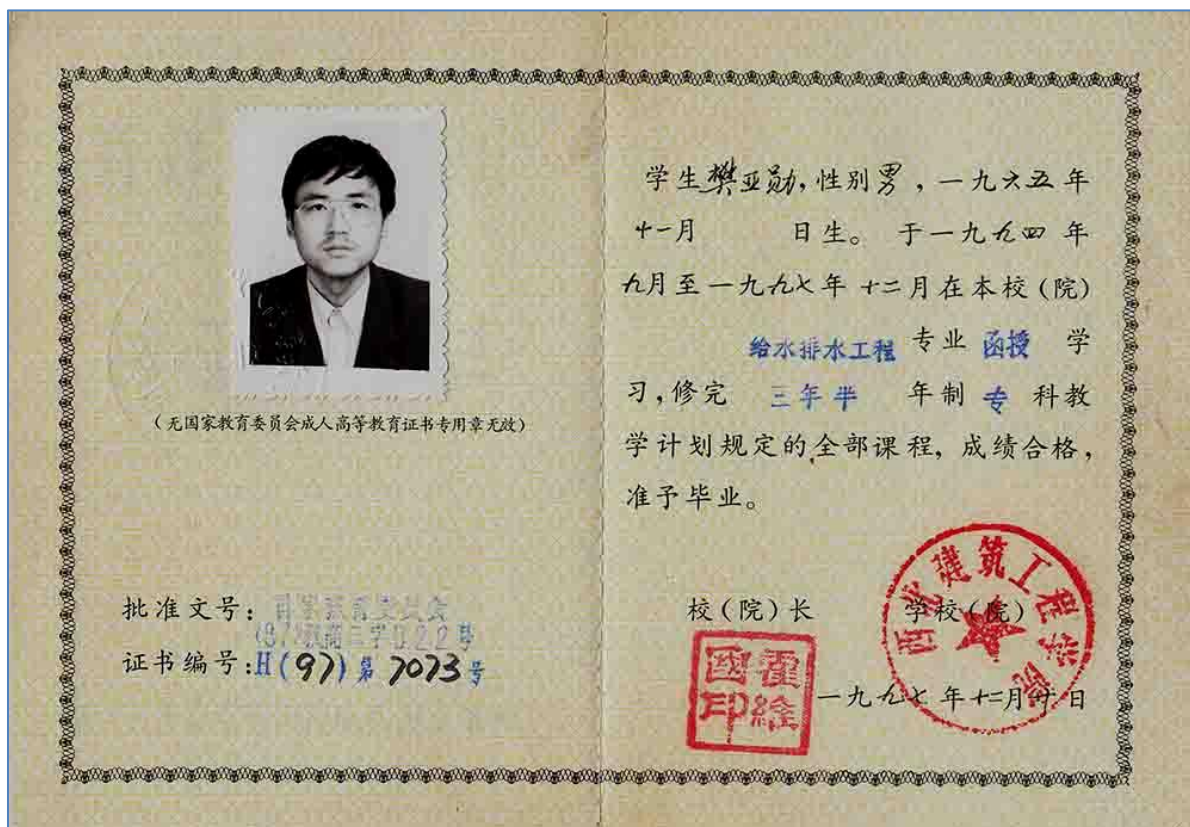 (无国家教育委员会成人高等教育证书专用章无效)
批准文号:
证书编号:H(97)第7073号
学生樊亚勋,性别男,一九六五年
十一月 日生。于一九九四年
九月至一九九七年十二月在本校(院)
给水排水工程专业函授学
习,修完三年半年制专科教
学计划规定的全部课程,成绩合格,
准予毕业。
校(院)长 学校(院)
霍维國印
西北建筑工程学院
一九九七年十二月廿日